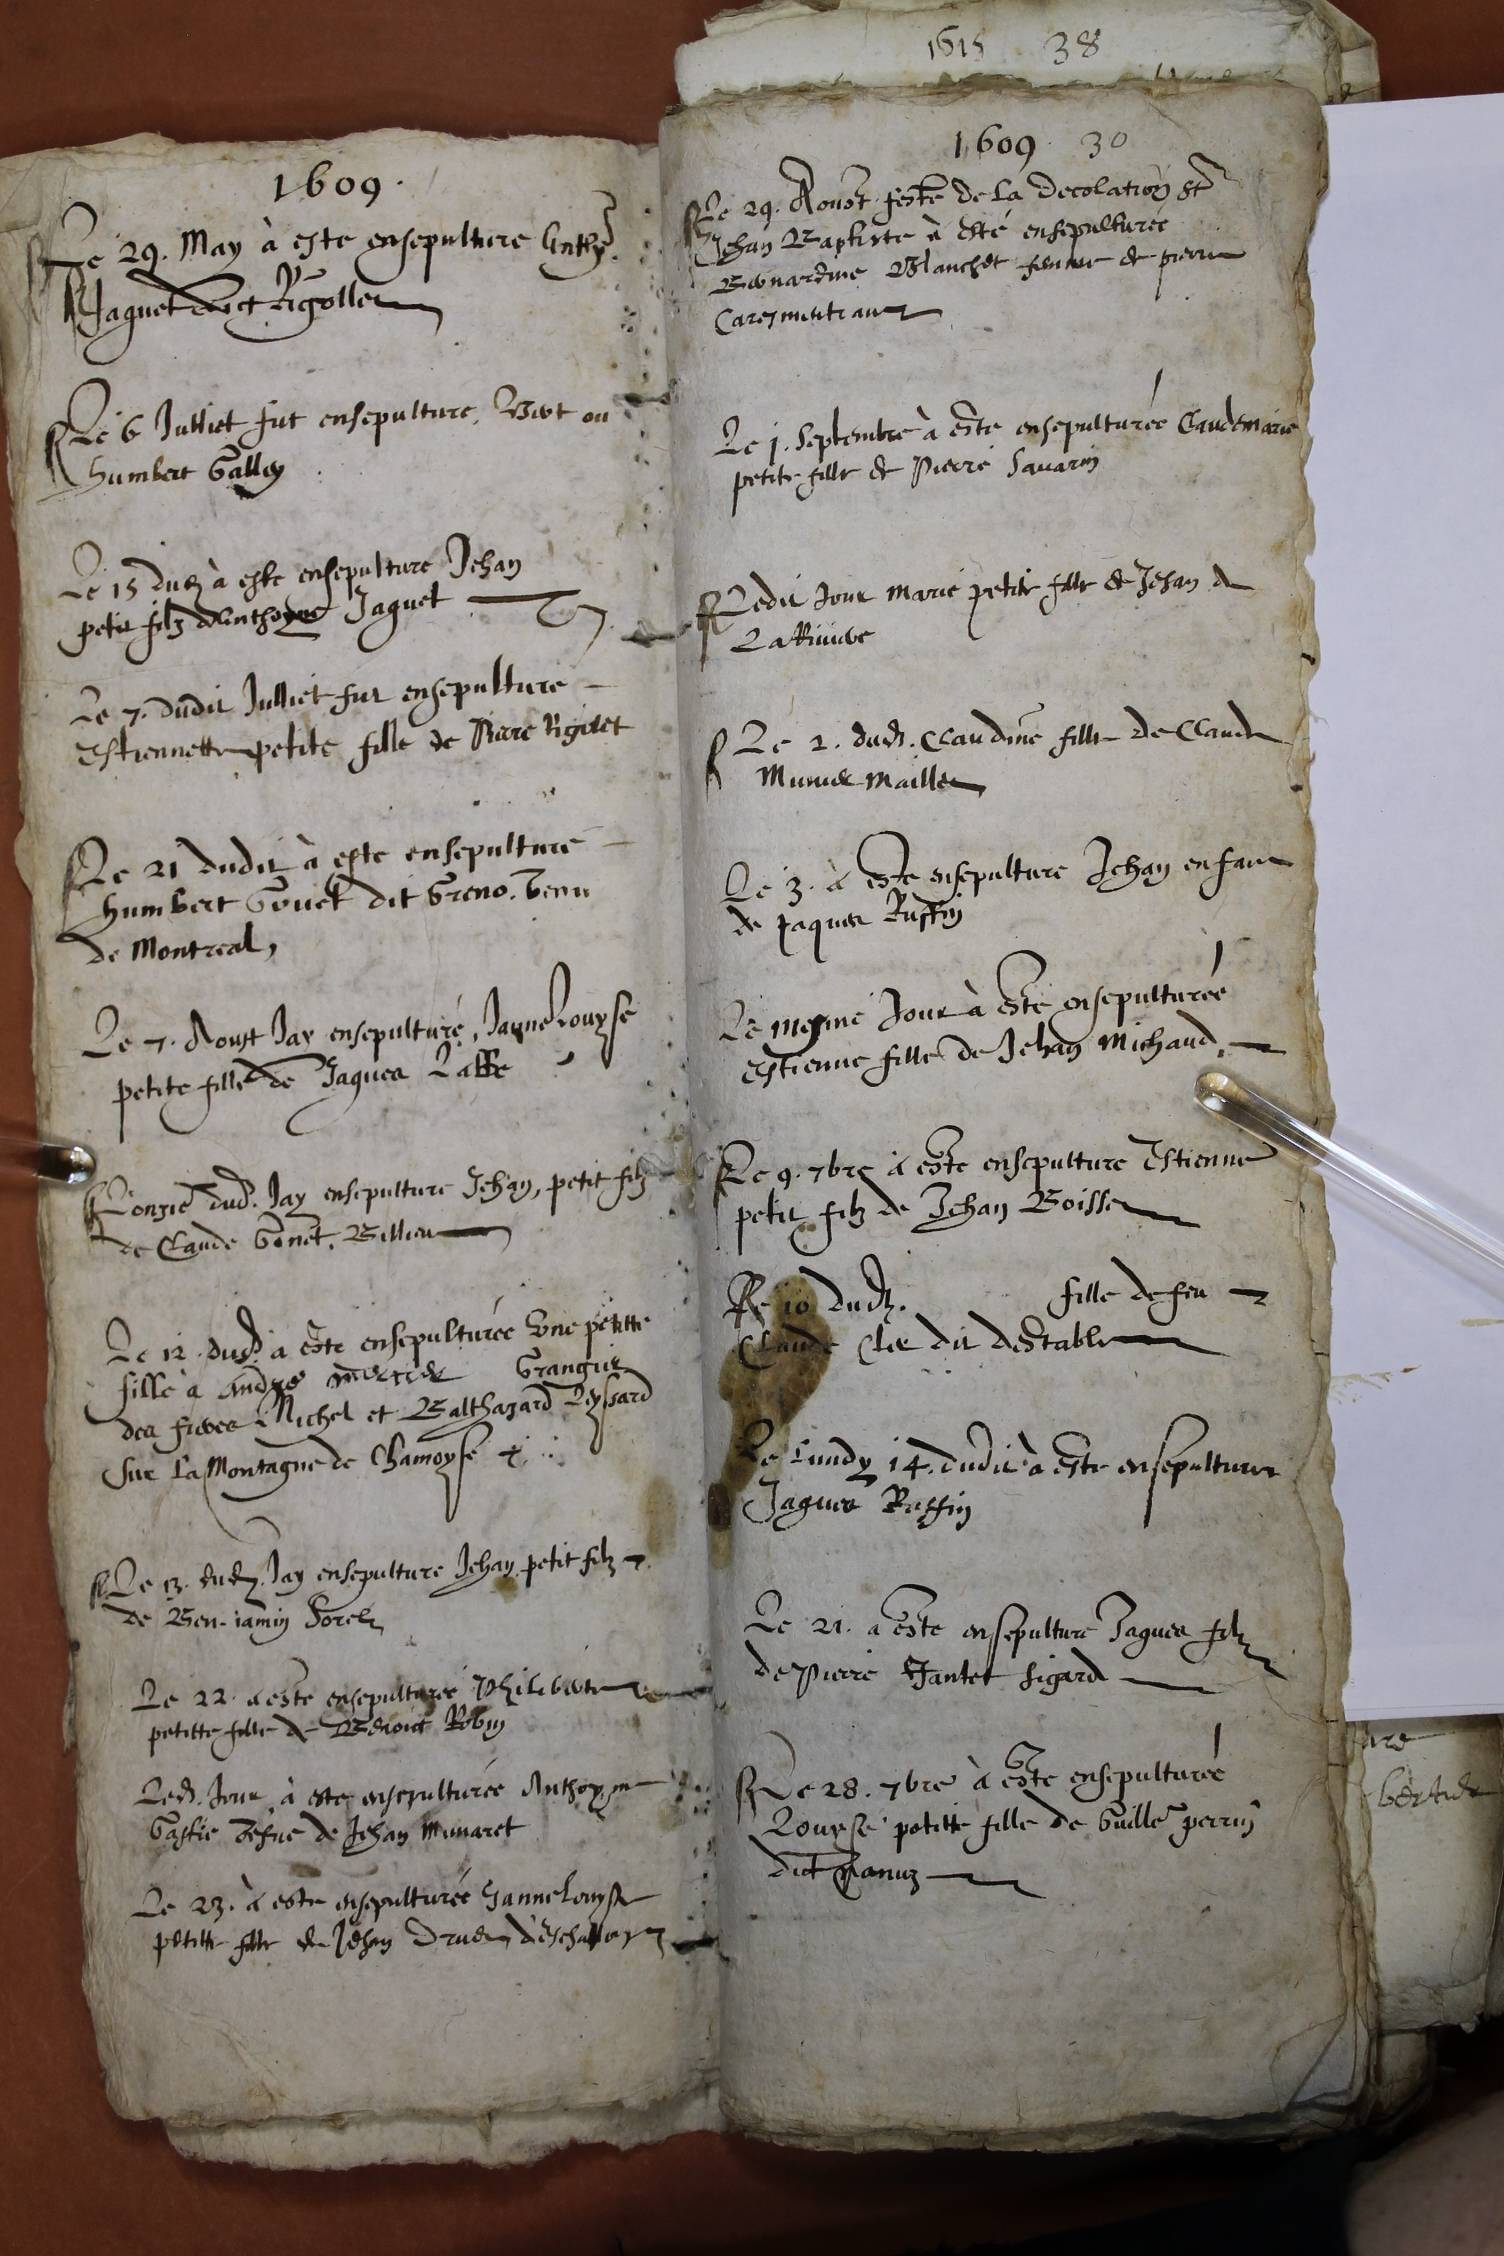 1609.
Le 29. May à este ensepulture Anthe
Jaquet dict Rigollet
Le 6 Julliet fut ensepulture, Vivet ou
humbert Galley
Le 15 dud à este ensepulture Jehan
petit filz d'Anthoyne Jaquet
Le 7. dudit Julliet fut ensepulture
Estiennette petite fille de Pierre Rigolet
Le 21 dudit à este ensepulture
humbert Gonet dit Greno. venu
de Montreal,
Le 7. Aoust Jay ensepulturé, Janne Louyse
petite fille de Jaques Laffe
L'onzie dud. Jay ensepulture Jehan, petit filz
de Claude Gonet, Billion
Le 12. dud. à este ensepulturée une petitte
fille à André mercier Grangier
des freres Michel et Balthazard Leyssard
sur la Montagne de Chamoyse
Le 13. dud. Jay ensepulture Jehan petit filz
de Beniamin Sorel
Le 22. à este ensepulturée Philiberte
petitte fille de Benoict Robin
Led. Jour à este ensepulturée Anthoyne
Gastie vefue de Jehan Munaret
Le 23. à este ensepulturée Janne Louyse
petitte fille de Jehan Drues d'eschallon
1615 38
1609. 30
Le 29. Aoust feste de la decolation St
Jehan Baptiste à esté ensepulturee
Bernardine Blanchet femme de pierre
Caresmentrant
Le 1. Septembre à este ensepulturée Claudemarie
petite fille de Pierre Sauarin
Ledit Jour Marie petite fille de Jehan de
La Riuiere
Le 2. dud. Claudine fille de Claude
Munier Maillet
Le 3. à este ensepulture Jehan enfant
de Jaques Ruffin
Le mesme Jour à este ensepulturée
Estienne fille de Jehan Michaud,
Le 9. 7bre à este ensepulture Estienne
petit filz de Jehan Boisse
Le 10 dud. fille de feu
Claude Clet dit d'estable
Le Lundy 14. dudit à este ensepulture
Jaques Ruffin
Le 21. à este ensepulture Jaques filz
de Pierre Jantet Sigard
Le 28. 7bre à este ensepulturée
Louyse petitte fille de Guille perrin
dict Canuz